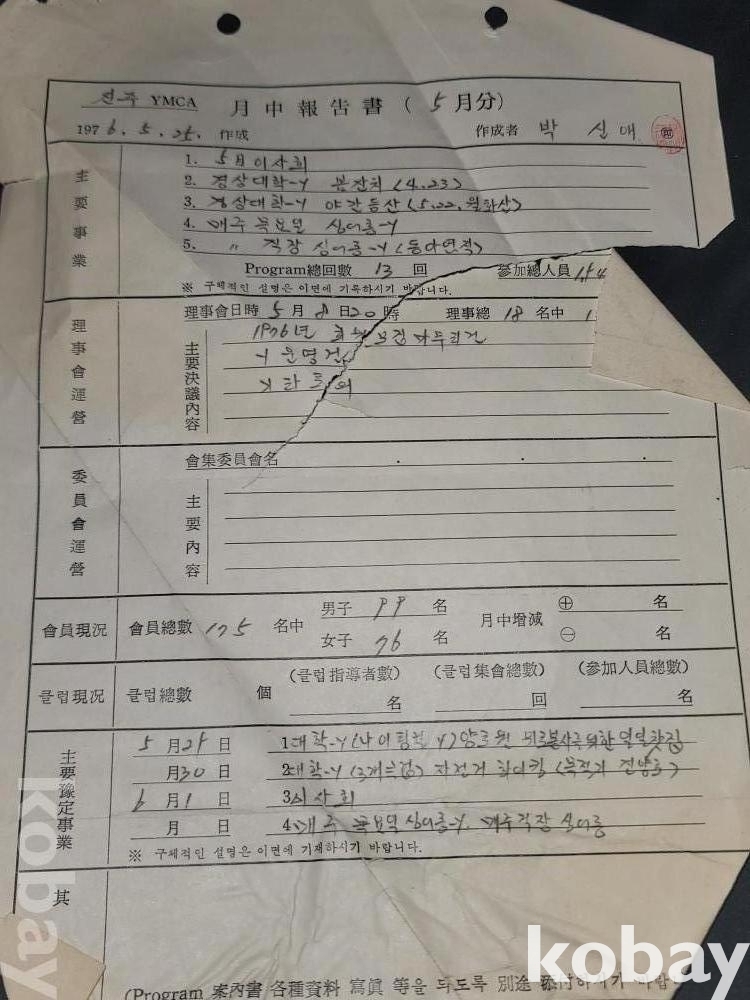 YMCA 月中報告書 ( 5 月分)
1976. 5. 25. 作成 作成者 박 신 애
主要事業
1. 5月 이사회
2. 경상대학-Y 봄잔치 (4.23)
3. 경상대학-Y 야간등산 (5.22.
4. 매주 목요일 싱어롱-Y
5. 〃 직장 싱어롱-Y
Program總回數 13 回 參加總人員
※ 구체적인 설명은 이면에 기록하시기 바랍니다.
理事會運營
理事會日時 5 月 8 日 20 時 理事總 18 名中
主要決議內容
1976년
Y 운영건
기타 토의
委員會運營
會集委員會名
主要內容
會員現況 會員總數 175 名中 男子 99 名 月中增減 ⊕ 名
女子 76 名 ㊀ 名
클럽現況 클럽總數 個 (클럽指導者數) 名 (클럽集會總數) 回 (參加人員總數) 名
主要豫定事業
5 月 29 日 1. 대학-Y
月 30 日 2. 대학-Y 자전거 하이킹
6 月 1 日 3. 이사회
月 日 4. 매주 목요일 싱어롱-Y. 매주 직장 싱어롱
※ 구체적인 설명은 이면에 기재하시기 바랍니다.
其
(Program 案內書 各種資料 寫眞 等을 되도록 別途 添付하시기 바랍니
kobay
kobay